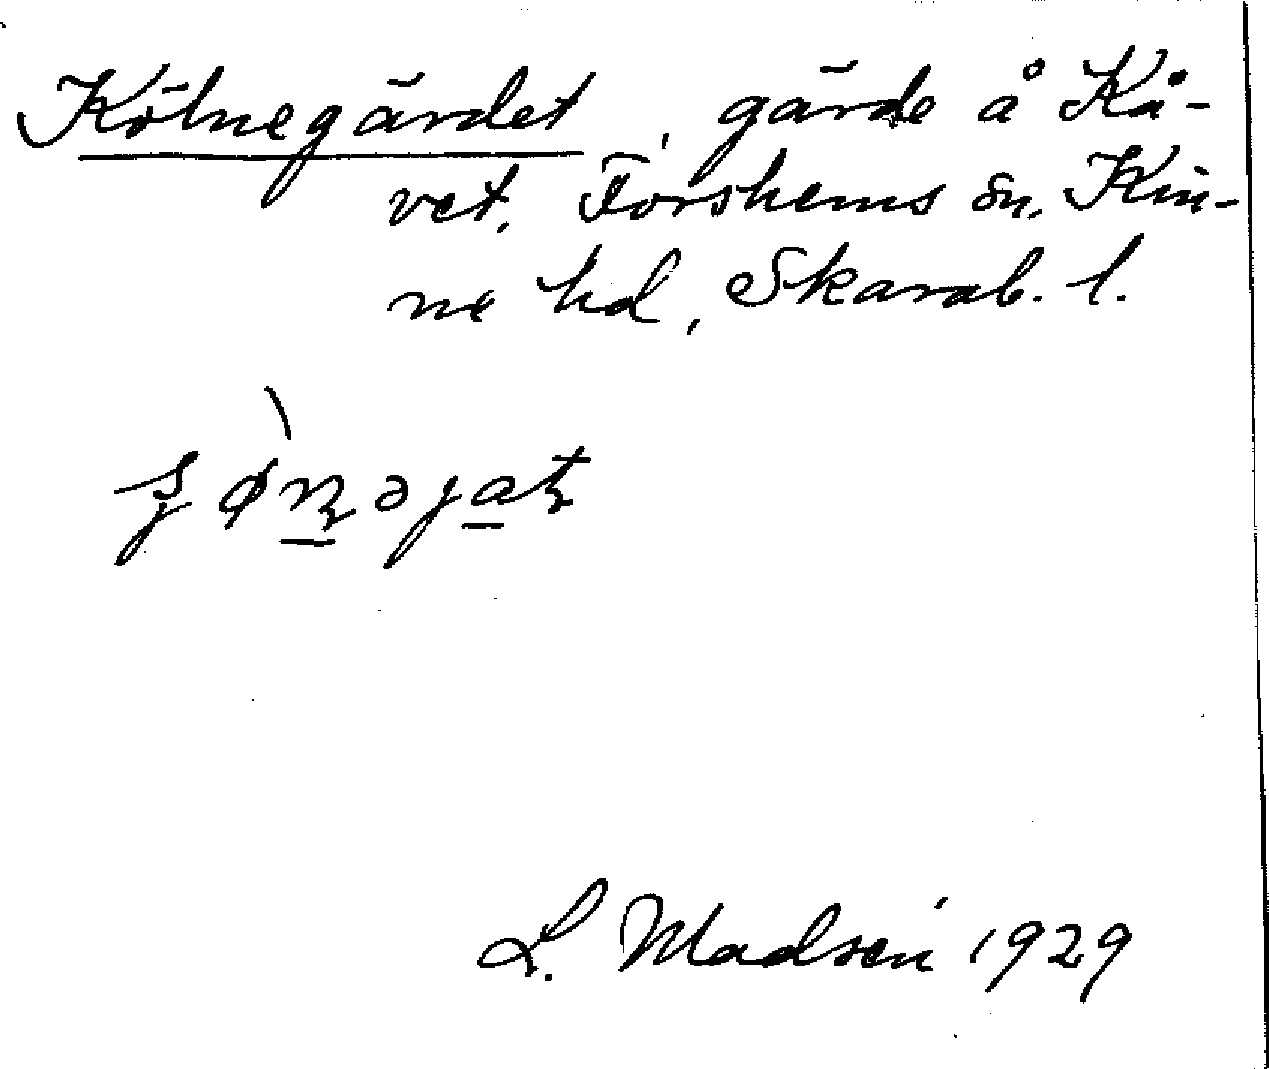 Kölnegärdet, gärde å Kå-
vet, Forshems sn, Kin-
ne hd, Skarab. l.
L. Madsén 1929